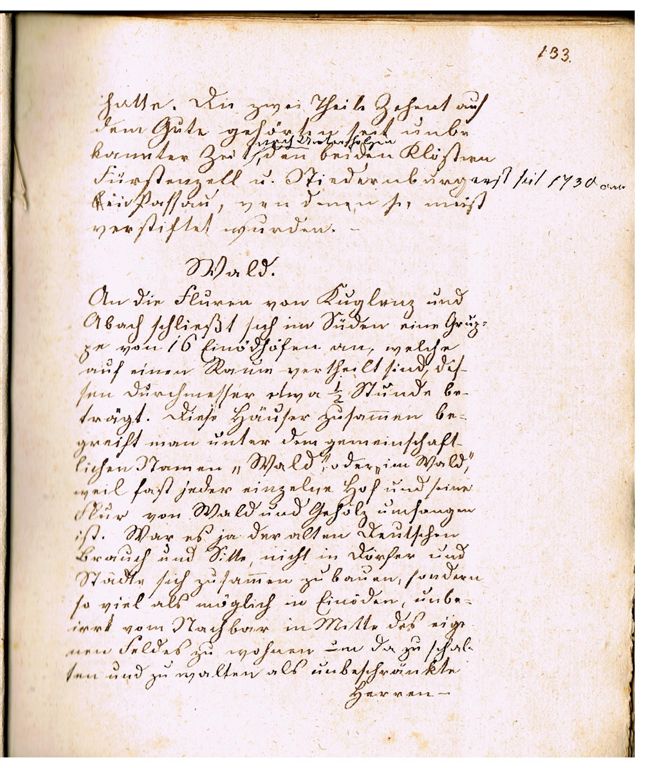 133.
hatte. Die zwei Theile Zehent auf
dem Gute gehörten seit unbe
kannter Zeit, den beiden Klöstern
Fürstenzell u. Niedernburg erst seit 1730
Passau, von denen sie meist
verstiftet wurden. –
Wald.
An die Fluren von Kuglenz und
Abach schließt sich im Süden eine Grup-
pe von 16 Einödhöfen an, welche
auf einen Raum vertheilt sind, des-
sen Durchmesser etwa ½ Stunde be-
trägt. Diese Häuser zusammen be-
greift man unter dem gemeinschaft-
lichen Namen „Wald“, oder „im Wald“,
weil fast jeder einzelne Hof und seine
Flur von Wald und Gehölz umfangen
ist. War es ja der alten Deutschen
Brauch und Sitte, nicht in Dörfer und
Städte sich zusammen zu bauen, sondern
so viel als möglich in Einöden, unbe-
irrt vom Nachbar in Mitte des eige
nen Feldes zu wohnen um da zu schal-
ten und zu walten als unbeschränkte
Herren –